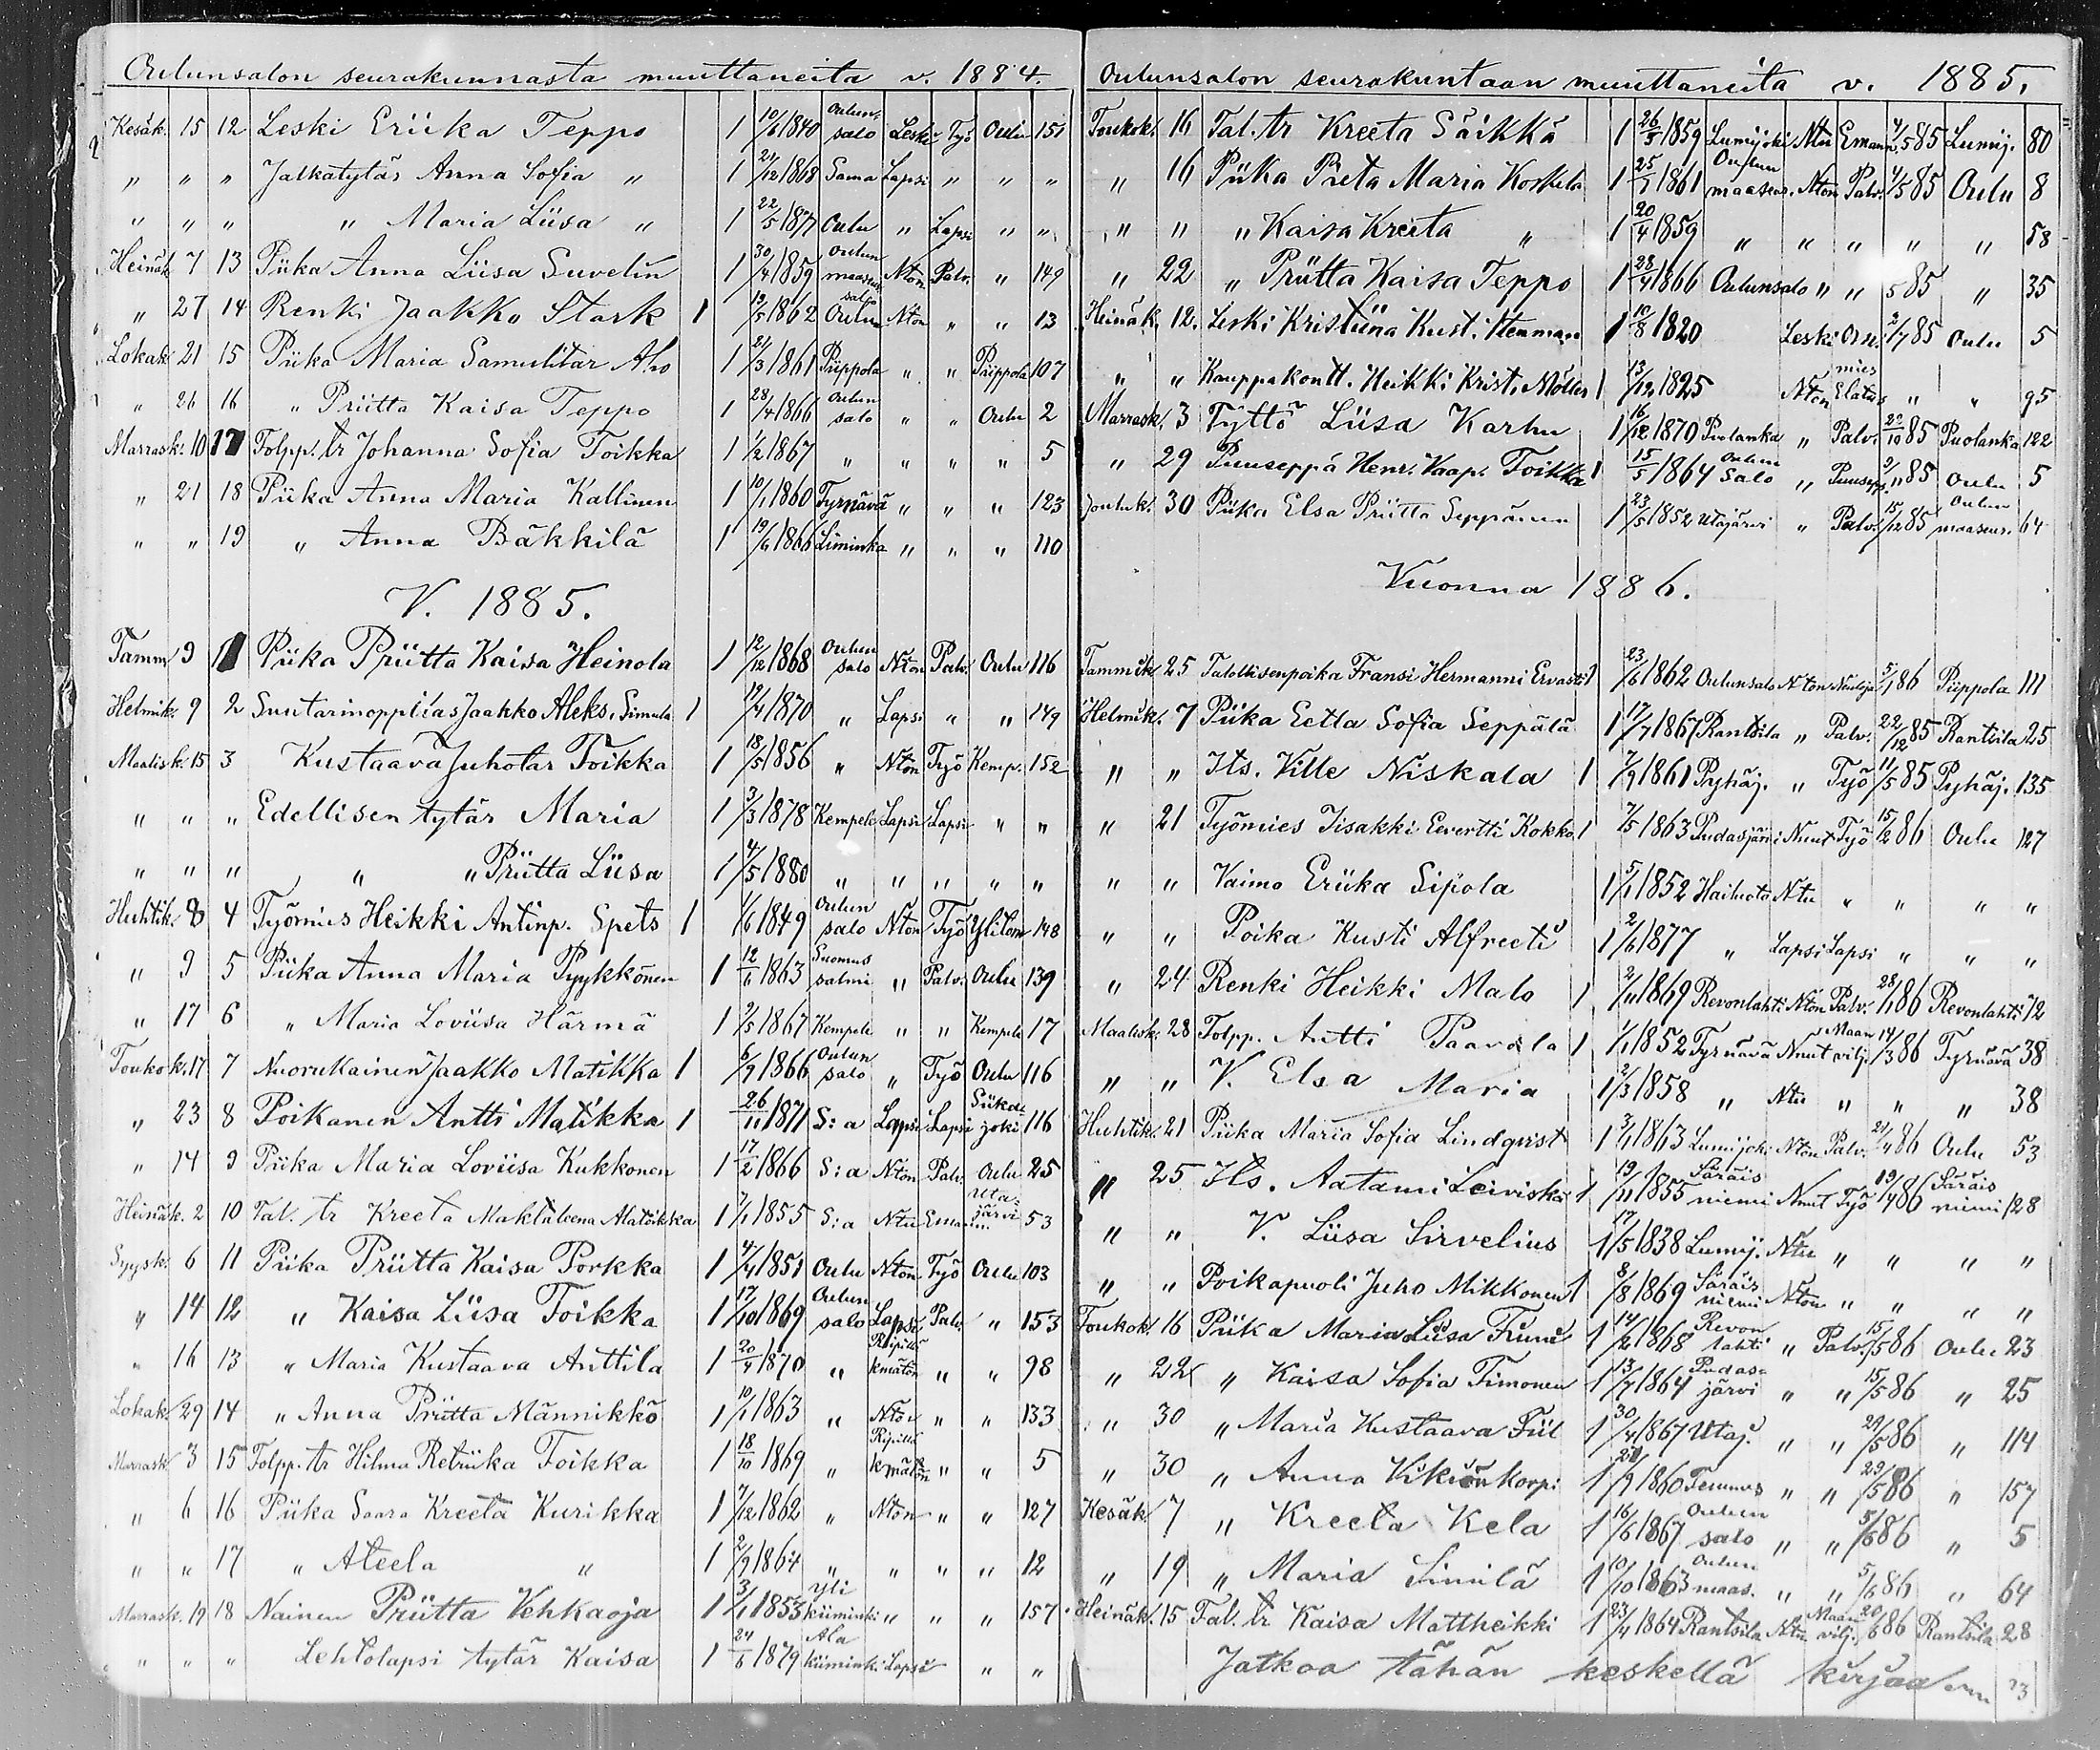 Oulunsalon seurakunnasta muuttaneita v. 1884.
Kesäk. 15 12 Leski Eriika Teppo 1 10/6 1840 Oulunsalo Leski Työ Oulu 151
" " " Jalkatytär Anna Sofia " 1 21/12 1868 Sama Lapsi " " "
" " " " Maria Liisa " 1 22/5 1877 Oulu " Lapsi " "
Heinäk. 7 13 Piika Anna Liisa Suvelin 1 30/4 1859 Oulun maaseur. Ntön Palv. " 149
" 27 14 Renki Jaakko Stark 1 19/5 1862 Oulunsalo Ntön " " 13
Lokak. 21 15 Piika Maria Samulitar Aho 1 21/3 1861 Piippola " " Piippola 107
" 26 16 " Priitta Kaisa Teppo 1 28/4 1866 Oulunsalo " " Oulu 2
Marrask. 10 17 Tolpp. tr Johanna Sofia Toikka 1 1/2 1867 " " " " 5
" 21 18 Piika Anna Maria Kallinen 1 10/1 1860 Tyrnävä " " " 123
" " 19 " Anna Bäkkilä 1 19/6 1866 Liminka " " " 110
V. 1885.
Tamm 9 1 Piika Priitta Kaisa Heinola 1 12/12 1868 Oulunsalo Ntön Palv. Oulu 116
Helmik. 9 2 Suutarinoppilas Jaakko Aleks. Simula 1 12/4 1870 " Lapsi " " 149
Maalisk. 15 3 Kustaava Juhotar Toikka 1 18/5 1856 " Ntön Työ Kemp. 152
" " " Edellisen tytär Maria 1 3/3 1878 Kempele Lapsi Lapsi " "
" " " " " Priitta Liisa 1 4/5 1880 " " " " "
Huhtik. 8 4 Työmies Heikki Antinp. Spets 1 1/6 1849 Oulunsalo Ntön Työ Ylitorn 148
" 9 5 Piika Anna Maria Pyykkönen 1 12/6 1863 Suomussalmi " Palv. Oulu 139
" 17 6 " Maria Loviisa Härmä 1 2/5 1867 Kempele " " Kempele 17
Toukok. 17 7 Nuorukainen Jaakko Matikka 1 6/9 1866 Oulunsalo " Työ Oulu 116
" 23 8 Poikanen Antti Matikka 1 26/11 1871 S:a Lapsi Lapsi Siikajoki 116
" 14 9 Piika Maria Loviisa Kukkonen 1 17/2 1866 S:a Ntön Palv. Oulu 25
Heinäk. 2 10 Tal. tr Kreeta Maktaleena Alatoikka 1 7/1 1855 S:a Ntu Emän. Utajärvi 53
Syysk. 6 11 Piika Priitta Kaisa Porkka 1 4/4 1851 Oulu Ntön Työ Oulu 103
" 14 12 " Kaisa Liisa Toikka 1 17/10 1869 Oulunsalo Lapsi Palv. " 153
" 16 13 " Maria Kustaava Anttila 1 20/4 1870 " Ripillä kmätön " " 98
Lokak. 29 14 " Anna Priitta Männikkö 1 10/1 1863 " Ntön " " 133
Marrask. 3 15 Tolpp. tr Hilma Retriika Toikka 1 18/10 1869 " Ripillä kmätön " " 5
" 6 16 Piika Saara Kreeta Kurikka 1 7/12 1862 " Ntön " " 127
" " 17 " Ateela " 1 2/9 1864 " " " " 12
Marrask. 19 18 Nainen Priitta Vehkaoja 1 3/1 1853 Ylikiiminki " " " 157
" " " Lehtolapsi tytär Kaisa 1 24/6 1879 Alakiiminki Lapsi " "
Oulunsalon seurakuntaan muuttaneita v. 1885.
Toukok. 16 Tal. tr Kreeta Säikkä 1 26/5 1859 Lumijoki Ntu Emänn. 4/5 85 Lumij. 80
" 16 Piika Preta Maria Koskela 1 25/7 1861 Oulun maaseur. Ntön Palv. 4/5 85 Oulu 8
" " " Kaisa Kreeta " 1 20/4 1859 " " " " " 58
" 22 " Priitta Kaisa Teppo 1 28/4 1866 Oulunsalo " " 5 85 " 35
Heinäk. 12. Leski Kristiina Kust. Hemman 1 10/8 1820 Leski 2/7 85 Oulu 5
" " Kauppakontt. Heikki Krist. Möller 1 13/12 1825 Ntön Elatusmies " " 95
Marrask. 3 Tyttö Liisa Karhu 1 16/12 1870 Puolanka " Palv. 22/10 85 Puolanka 122
" 29 Puuseppä Henr. Kaap. Toikka 1 15/5 1864 Oulunsalo " Puusepp. 2/11 85 Oulu 5
Jouluk. 30 Piika Elsa Priitta Seppänen 1 23/5 1852 Utajärvi " Palv. 15/12 85 Oulun maaseur. 64
Vuonna 1886.
Tammik. 25 Talollisenpoika Fransi Hermanni Ervasti 1 23/6 1862 Oulunsalo Ntön 5/1 86 Piippola 111
Helmik. 7 Piika Eetla Sofia Seppälä 1 17/7 1867 Rantsila " Palv. 22/12 85 Rantsila 25
" " Its. Ville Niskala 1 7/9 1861 Pyhäj. " Työ 11/5 85 Pyhäj. 135
" 21 Työmies Iisakki Eevertti Kokko 1 7/5 1863 Pudasjärvi Nnut Työ 15/2 86 Oulu 127
" " Vaimo Eriika Sipola 1 5/1 1852 Hailuoto Ntu " " " "
" " Poika Kusti Alfreeti 1 2/6 1877 " Lapsi Lapsi " " "
" 24 Renki Heikki Malo 1 2/11 1869 Revonlahti Ntön Palv. 28/1 86 Revonlahti 72
Maalisk. 28 Tolpp. Antti Paavola 1 1/1 1852 Tyrnävä Nnut Maanvilj. 14/3 86 Tyrnävä 38
" " V. Elsa Maria 1 2/3 1858 " Ntu " " " 38
Huhtik. 21 Piika Maria Sofia Lindqvist 1 3/1 1863 Lumijoki Ntön Palv. 21/4 86 Oulu 53
" 25 Its. Aatami Leiviskä 1 19/11 1855 Säräisniemi Nnut Työ 19/4 86 Säräisniemi 128
" " V. Liisa Sirvelius 1 17/5 1838 Lumij. Ntu " " " "
" " Poikapuoli Juho Mikkonen 1 8/8 1869 Säräisniemi Ntön " " " "
Toukok. 16 Piika Maria Liisa Fruni 1 14/2 1868 Revonlahti " Palv. 15/5 86 Oulu 23
" 22 " Kaisa Sofia Timonen 1 13/7 1864 Pudasjärvi " " 15/5 86 " 25
" 30 " Maria Kustaava Fiil 1 30/4 1867 Utaj. " " 29/5 86 " 114
" 30 " Anna Vikiönkorpi 1 21/9 1860 Temmes " " 29/5 86 " 157
Kesäk. 7 " Kreeta Kela 1 16/6 1867 Oulunsalo " " 5/6 86 " 5
" 19 " Maria Similä 1 10/10 1863 Oulun maas. " " 5/6 86 " 64
Heinäk. 15 Tal. tr Kaisa Mattheikki 1 23/4 1864 Rantsila Ntu Maanvilj. 20/6 86 Rantsila 28
Jatkoa tähän keskellä kirjaa